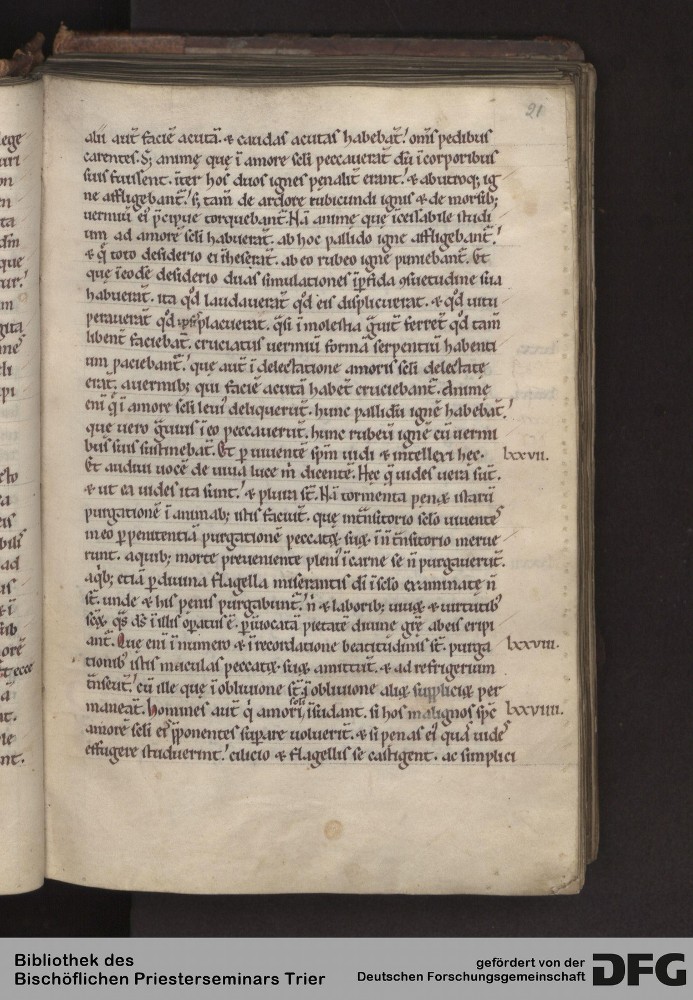 21
alii aut̄ faciē acutā. ⁊ caudas acutas habebāt. om̄s pedibus
carentes. S; animę quę ī amore scłi peccauerāt dū ī corporibus
suis fuissent. īter hos duos ignes penalit̄ erant. ⁊ ab utroq; ig
ne affligebant̄. s; tam̄ de ardore rubicundi ignis ⁊ de morsib;
uermiū ei p̄cipue torquebant̄. Nā animę quę īcessabile studi
um ad amorē scłi habuerāt. ab hoc pallido igne affligebant̄.
⁊ q̄ toto desiderio ei īheserāt. ab eo rubeo igne puniebant̄. Et
quę ī eodē desiderio duas simulationes ī p̄fida ꝯsuetudine sua
habuerāt. ita qd̄ laudauerāt qd̄ eis displicuerat. ⁊ qd̄ uitu
perauerāt qd̄ ipsis placuerat. q̄si ī molestia ḡuit̄ ferret̄ qd̄ tam̄
libent̄ faciebāt. cruciatus uermiū formā serpentiū habenti
um paciebant̄. quę aut̄ ī delectatione amoris scłi delectatę
erāt. a uermib; qui faciē acutā habēt cruciebant̄. Animę
eni q̄ ī amore scłi leui deliquerūt. hunc pallidū ignē habebāt.
quę uero ḡuius ī eo peccauerūt. hunc rubeū ignē cū uermi
bus suis sustinebāt. Et ꝑ uiuentē spm̄ uidi ⁊ intellexi hęc. lxxvii.
Et audiui uocē de uiua luce m̄ dicentē. Hęc q̄ uides uera sūt.
⁊ ut ea uides ita sunt. ⁊ plura st̄. Nā tormenta penaꝝ istarū
purgationē ī animab; istis faciūt. quę ī t̄nsitorio scło uiuentes
in eo ꝑ penitentiā purgationē peccatoꝝ suoꝝ ī n̄ t̄nsitorio merue
runt. a quib; morte preueniente pleni ī carne se n̄ purgauerūt.
a q̄b; etiā ꝑ diuina flagella miserantis di ī scło examinatę n̄
st̄. unde ⁊ his penis purgabunt̄. n̄ ⁊ laborib; uiuoꝝ ⁊ uirtutib;
scoꝝ q̄s ds̄ ī illis oꝑatus ē. ꝑ īuocatā pietatē diuinę grę̄ ab eis eripi
ant̄. Quę eni ī numero ⁊ ī recordatione beatitudinis st̄. purga lxxviii.
tionib; istis maculas peccatoꝝ suoꝝ amittūt. ⁊ ad refrigerium
t̄nseūt. cū illę quę ī obliuione st̄ ī obliuione alioꝝ supplicioꝝ per
maneāt. homines aut̄ q̄ amori scłi īsudant. si hos malignos spc̄ lxxviiii.
amorē scłi eis ꝓponentes suꝑare uoluerīt. ⁊ si penas eī quā uides
effugere studuerint. cilicio ⁊ flagellis se castigent. ac simplici
Bibliothek des
Bischöflichen Priesterseminars Trier
gefördert von der
Deutschen Forschungsgemeinschaft
DFG